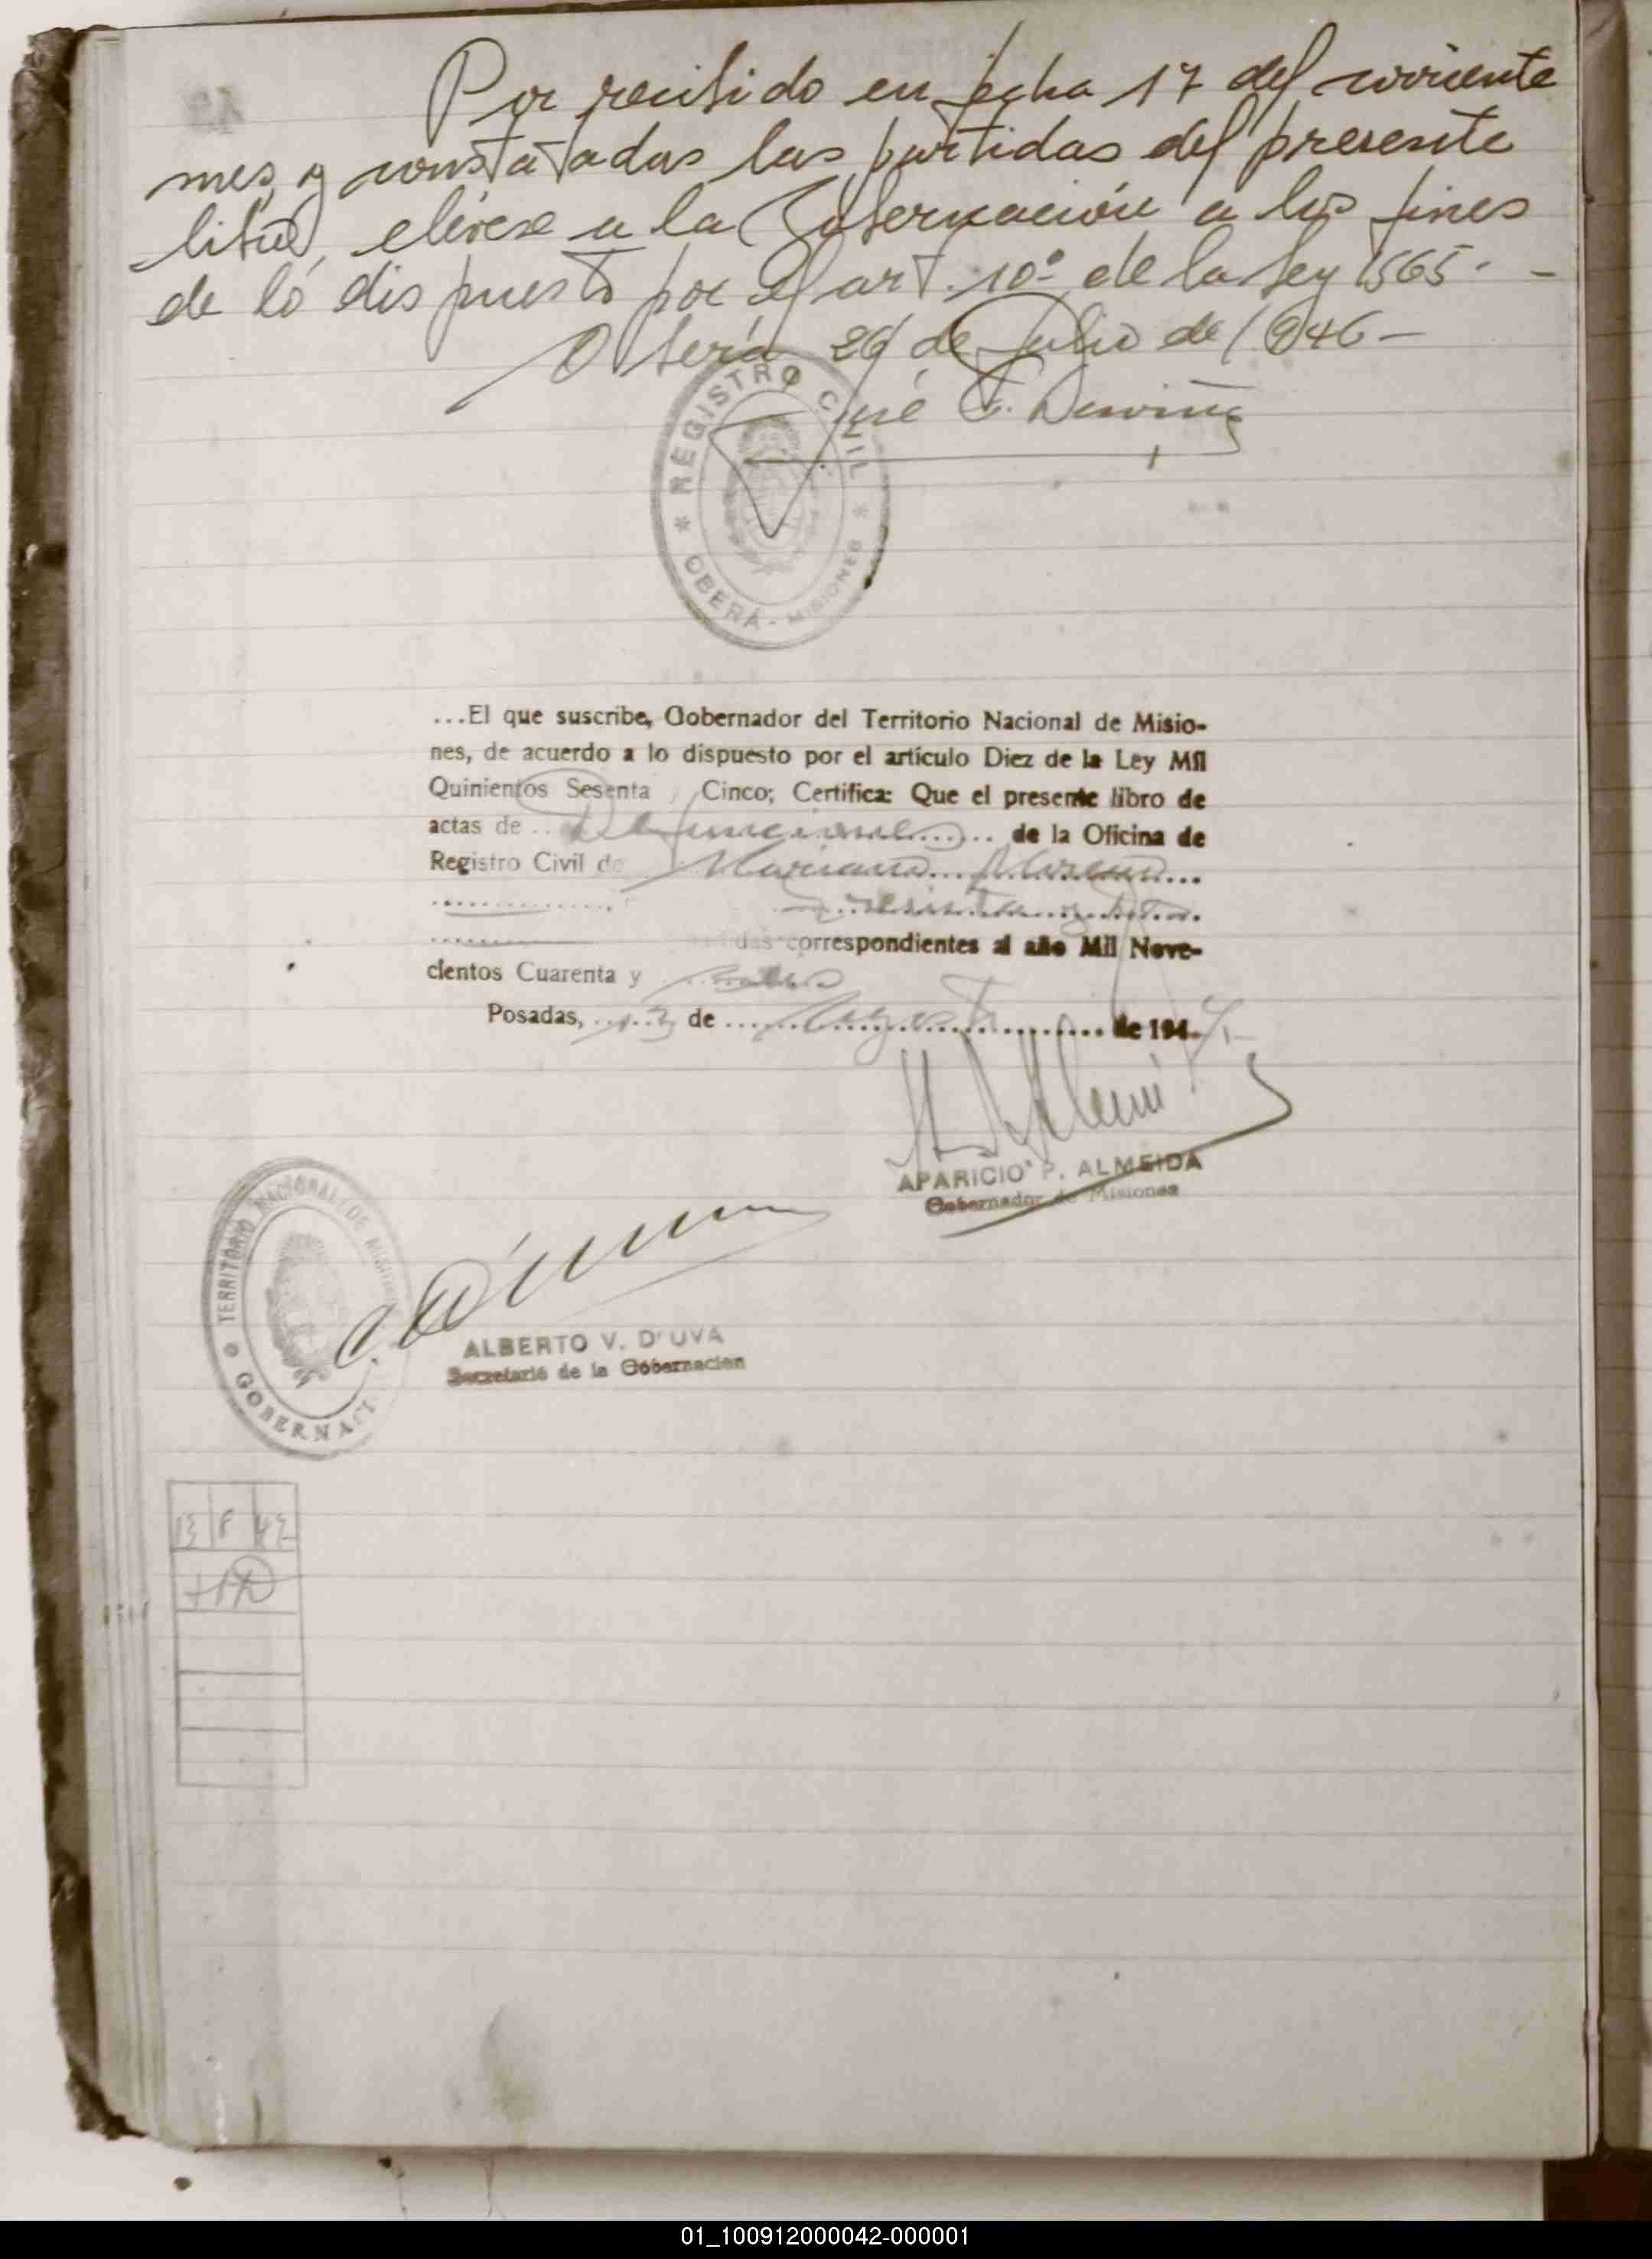 Por recibido en fecha 17 del corriente
mes, y constatadas las partidas del presente
libro, elévese a la Gobernación a los fines
de lo dispuesto por el art. 10º de la Ley 1565. -
Oberá 26 de Julio de 1946 -
José
REGISTRO CIVIL
* OBERÁ - MISIONES *
...El que suscribe, Gobernador del Territorio Nacional de Misio-
nes, de acuerdo a lo dispuesto por el artículo Diez de la Ley Mil
Quinientos Sesenta y Cinco; Certifica: Que el presente libro de
actas de .. Defunciones ...... de la Oficina de
Registro Civil de Mariano Moreno
das correspondientes al año Mil Nove-
cientos Cuarenta y
Posadas, 13 de Agosto de 194
APARICIO P. ALMEIDA
Gobernador de Misiones
TERRITORIO NACIONAL DE MISIONES
GOBERNACI
ALBERTO V. D'UVA
Secretario de la Gobernacion
01_100912000042-000001